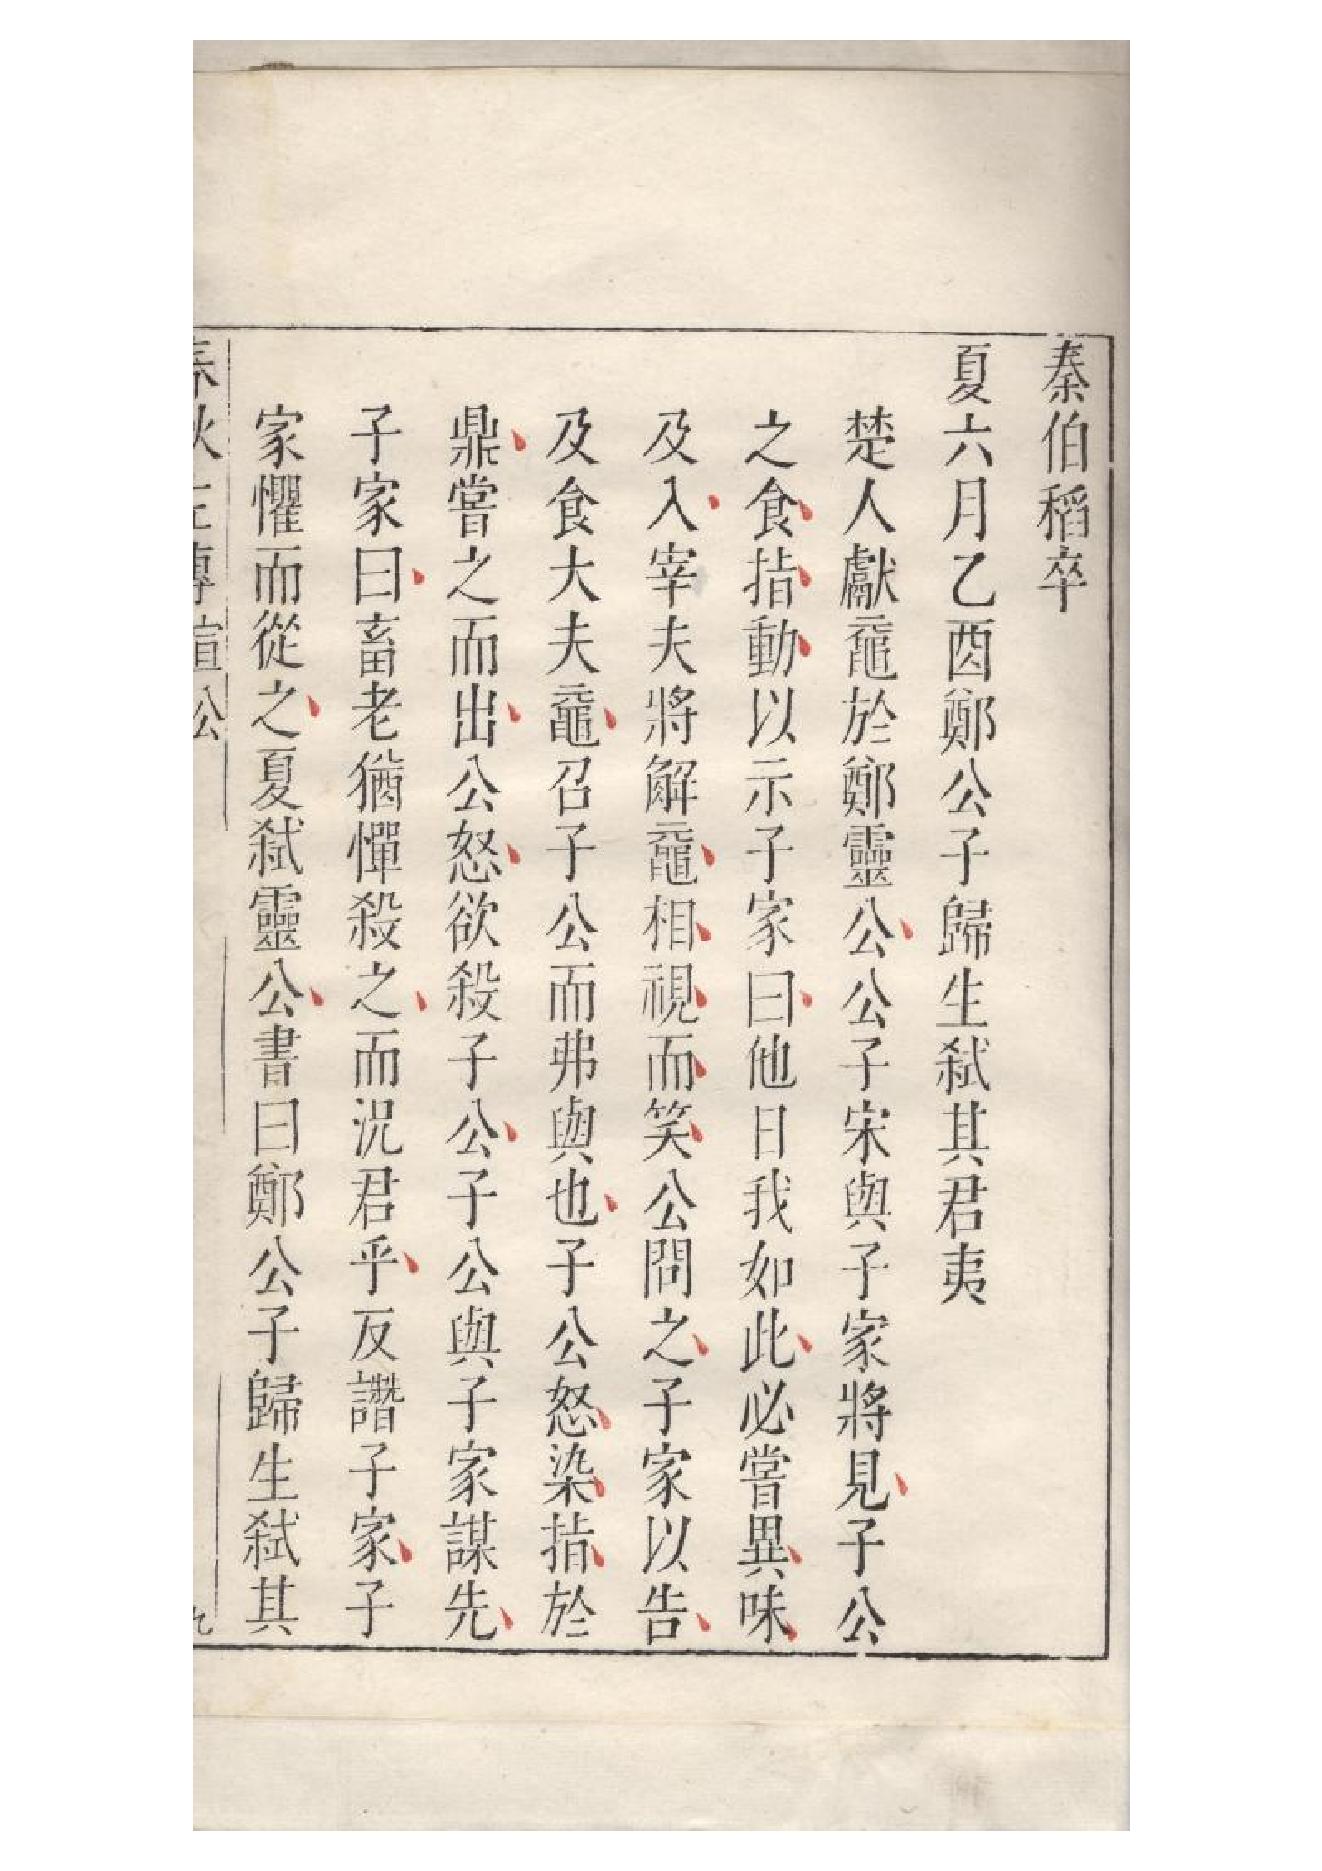 秦伯稻卒
夏六月乙酉鄭公子歸生弑其君夷
楚人獻黿於鄭靈公公子宋與子家將見子公
之食指動以示子家曰他日我如此必嘗異味
及入宰夫將解黿相視而笑公問之子家以告
及食大夫黿召子公而弗與也子公怒染指於
鼎嘗之而出公怒欲殺子公子公與子家謀先
子家曰畜老猶憚殺之而況君乎反譖子家子
家懼而從之夏弑靈公書曰鄭公子歸生弑其
春秋左傳 宣公 九